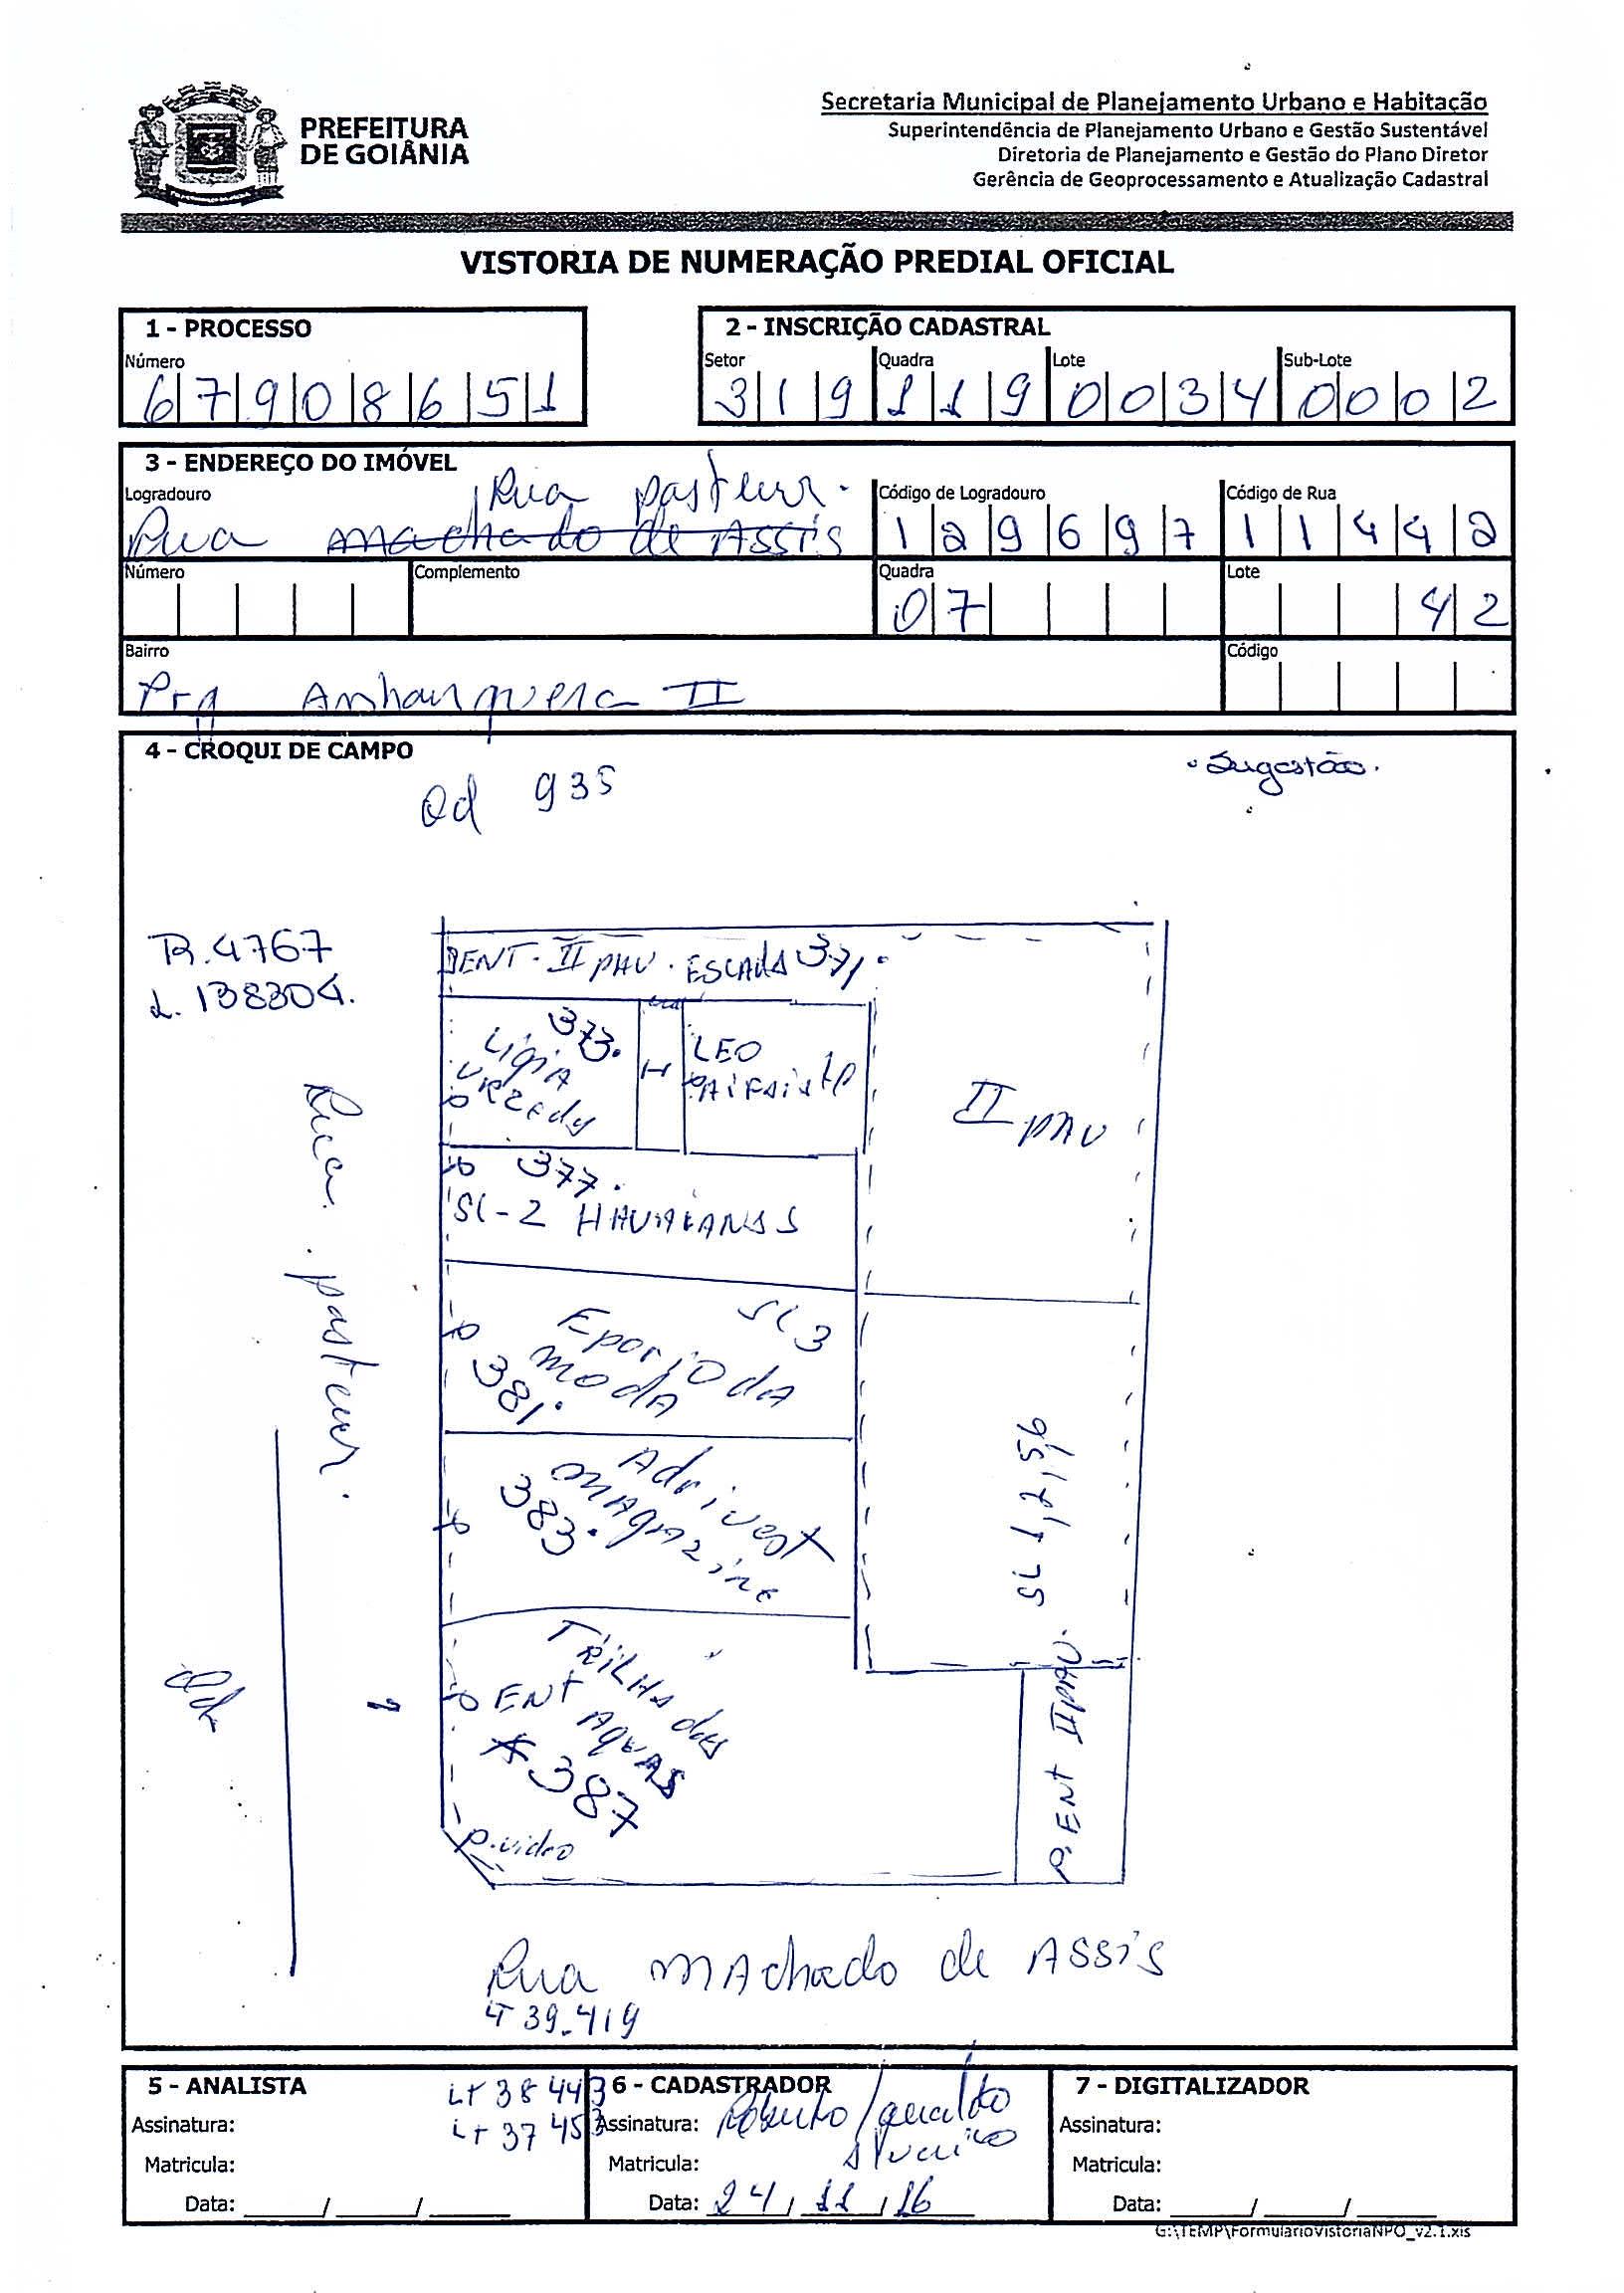 PREFEITURA
DE GOIÂNIA
Secretaria Municipal de Planejamento Urbano e Habitação
Superintendência de Planejamento Urbano e Gestão Sustentável
Diretoria de Planejamento e Gestão do Plano Diretor
Gerência de Geoprocessamento e Atualização Cadastral
VISTORIA DE NUMERAÇÃO PREDIAL OFICIAL
1 - PROCESSO
Número
6 7 9 0 8 6 5 1
2 - INSCRIÇÃO CADASTRAL
Setor Quadra Lote Sub-Lote
3 1 9 1 1 9 0 0 3 4 0 0 0 2
3 - ENDEREÇO DO IMÓVEL
Rua pasteur.
Logradouro Código de Logradouro Código de Rua
Rua machado de Assis 1 2 9 6 9 7 1 1 4 4 2
Número Complemento Quadra Lote
07 42
Bairro Código
Prq Anhanguera II
4 - CROQUI DE CAMPO
Sugestão.
Qd 935
R. 4767
L. 138304.
ENT - II PAV. ESCADA 371.
373.
Ligia
H
LEO
II PAV
377.
SL-2
SL 3
DA
MODA
381.
Adrivest
MAGAZINE
383.
SL 1,2,5,6
TRILHA das
ENT AGUAS
* 387
P. vidro
P. ENT II PAV.
Rua pasteur.
Qd
Rua MAchado de ASSis
LT 39-419
5 - ANALISTA
LT 38 443
LT 37 453
Assinatura:
Matricula:
Data: ___/___/___
6 - CADASTRADOR
Assinatura: Roberto /
Matricula:
Data: 24/11/16
7 - DIGITALIZADOR
Assinatura:
Matricula:
Data: ___/___/___
G:\TEMP\FormularioVistoriaNPO_v2.1.xls